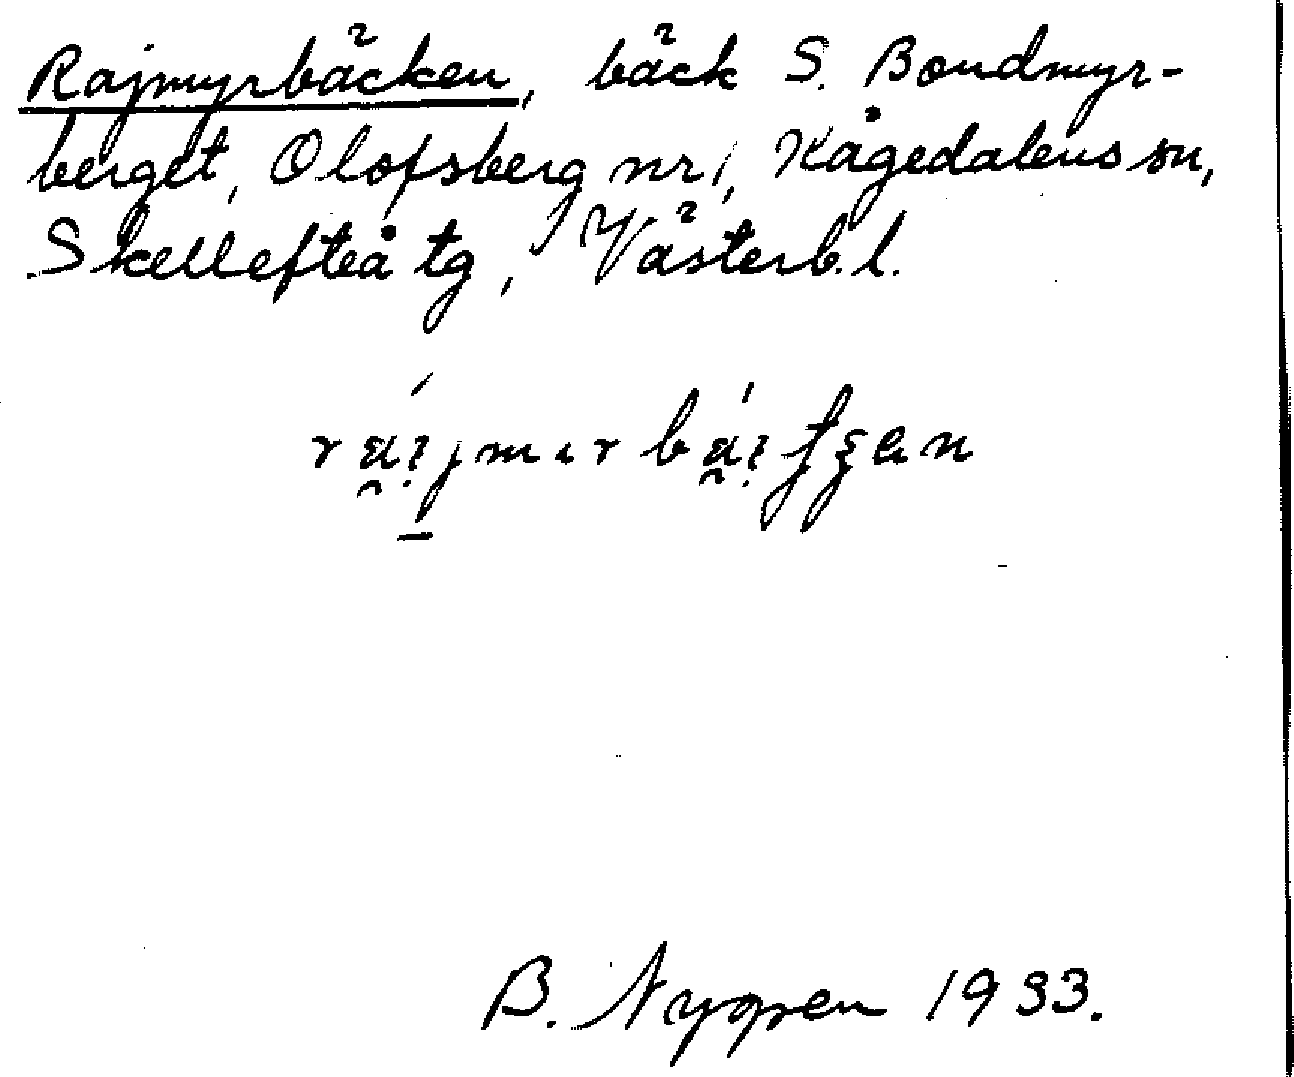 Rajmyrbäcken, bäck S. Bondmyr-
berget, Olofsberg nr 1, Kågedalens sn,
Skellefteå tg, Västerb. l.
B. Nygren 1933.